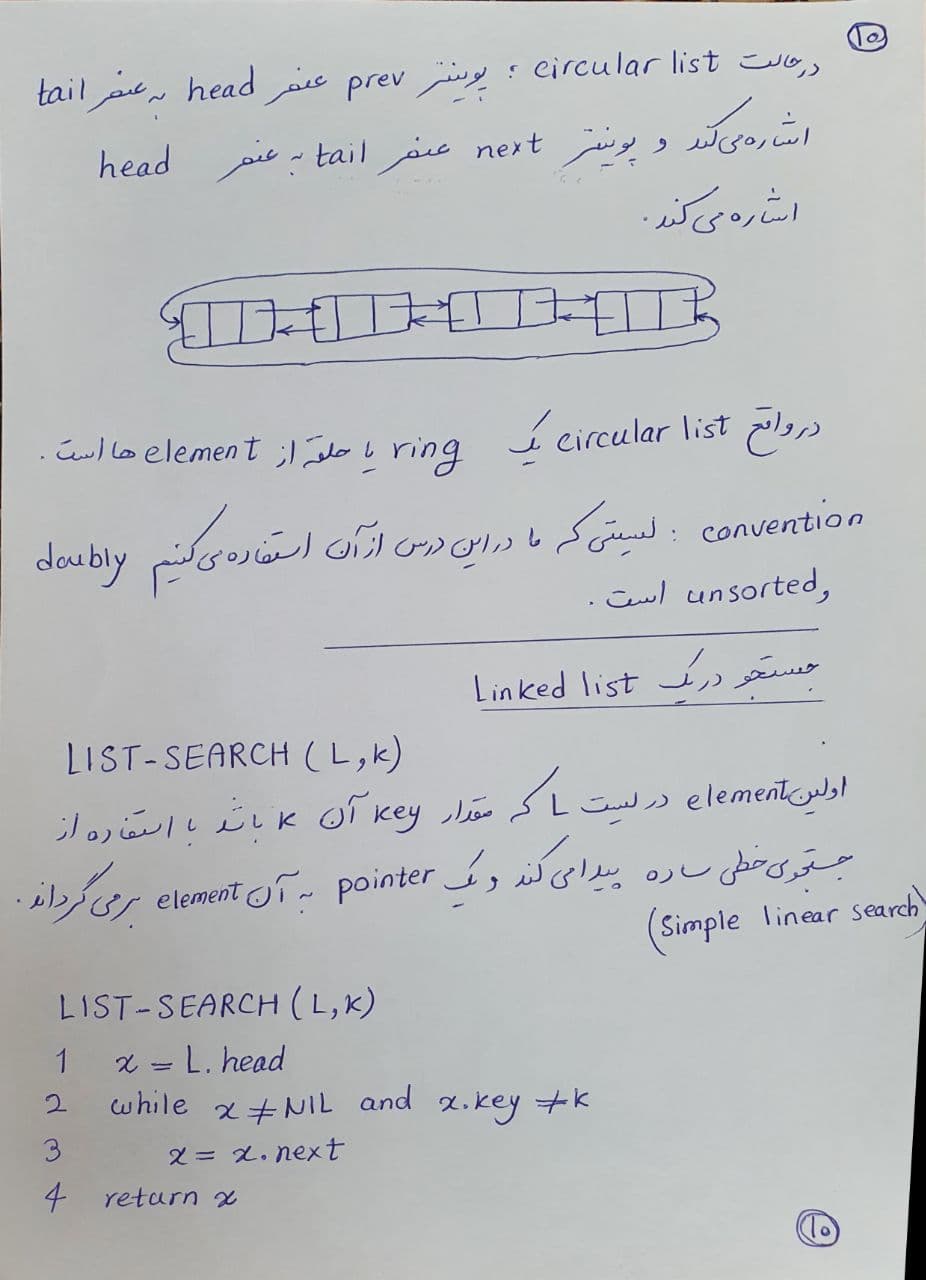 ۱۰
درحالت circular list : پوینتر prev عنصر head به عنصر tail
اشاره می‌کند و پوینتر next عنصر tail به عنصر head
اشاره می‌کند.
درواقع circular list یک ring یا حلقه از element ها است.
convention : لیستی که ما در این درس از آن استفاده می‌کنیم doubly
, unsorted است.
جستجو در یک Linked list
LIST-SEARCH (L,k)
اولین element در لیست L که مقدار key آن k باشد با استفاده از
جستجوی خطی ساده پیدا می‌کند و یک pointer به آن element برمی‌گرداند.
(simple linear search)
LIST-SEARCH (L,k)
1 x = L.head
2 while x ≠ NIL and x.key ≠ k
3 x = x.next
4 return x
۱۰